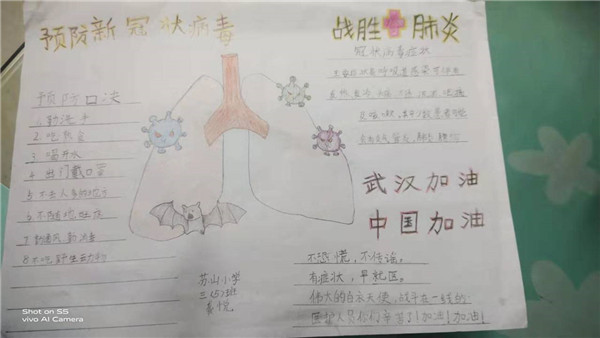 预防新冠状病毒
战胜肺炎
冠状病毒症状
预防口决
1 勤洗手
2. 吃熟食
3 喝开水
4 出门戴口罩
5 不去人多的地方
6 不随地吐痰
7 勤通风勤消毒
8 不吃野生动物
武汉加油
中国加油
不恐慌，不传谣。
有症状，早就医。
伟大的白衣天使，战斗在一线的
医护人员你们辛苦了！加油！加油！
苏山小学
三(5)班
Shot on S5
vivo AI Camera